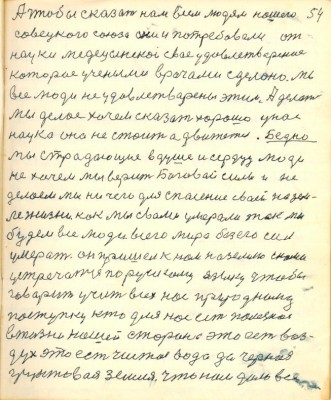 А чтобы сказат нам всем людям нашего 54
совецкого союза они и потребовали от
науки медецинской свае удовлетварение
которае учеными врачами сделоно. мы
все люди не удовлетварены этим. А делат
мы делае хочем сказат хорошо у нас
наука она не стоит а движется. Бедно
мы страдающие в душе и сердцу люди
не хочем мы верит Боговай силы и не
делаем мы ни чего для спасение своей
жизни как мы свами умерали так мы
будем все люди всего мира безего сил
умерат он пришел к нам на землю снами
устречатця по рускому езыку чтобы
говарит учит всех нас природнаму
поступку кто для нас ест полезное
в жизни нашей старане это ест воз-
дух это ест чистая вода да черная
грунтовая земля, что нам дала все